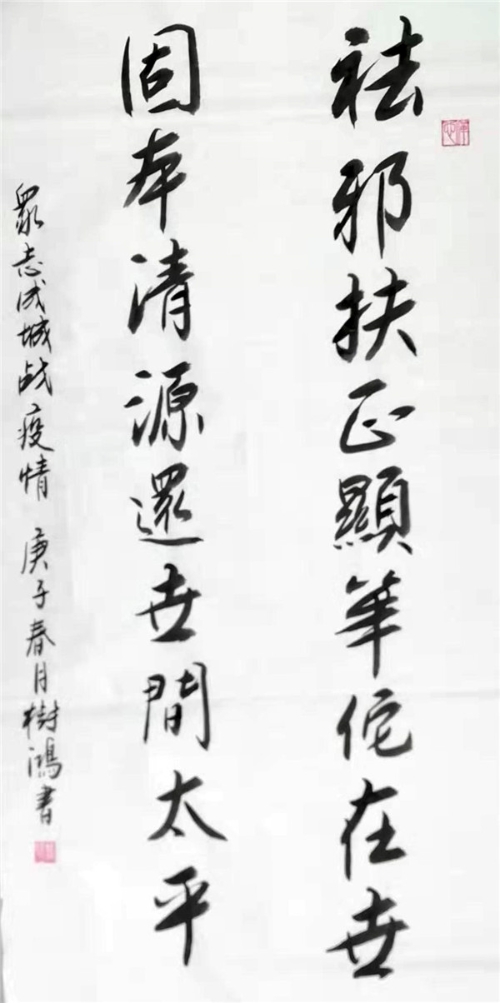 祛邪扶正顯华佗在世
固本清源還世間太平
眾志成城战疫情 庚子春月樹鴻書